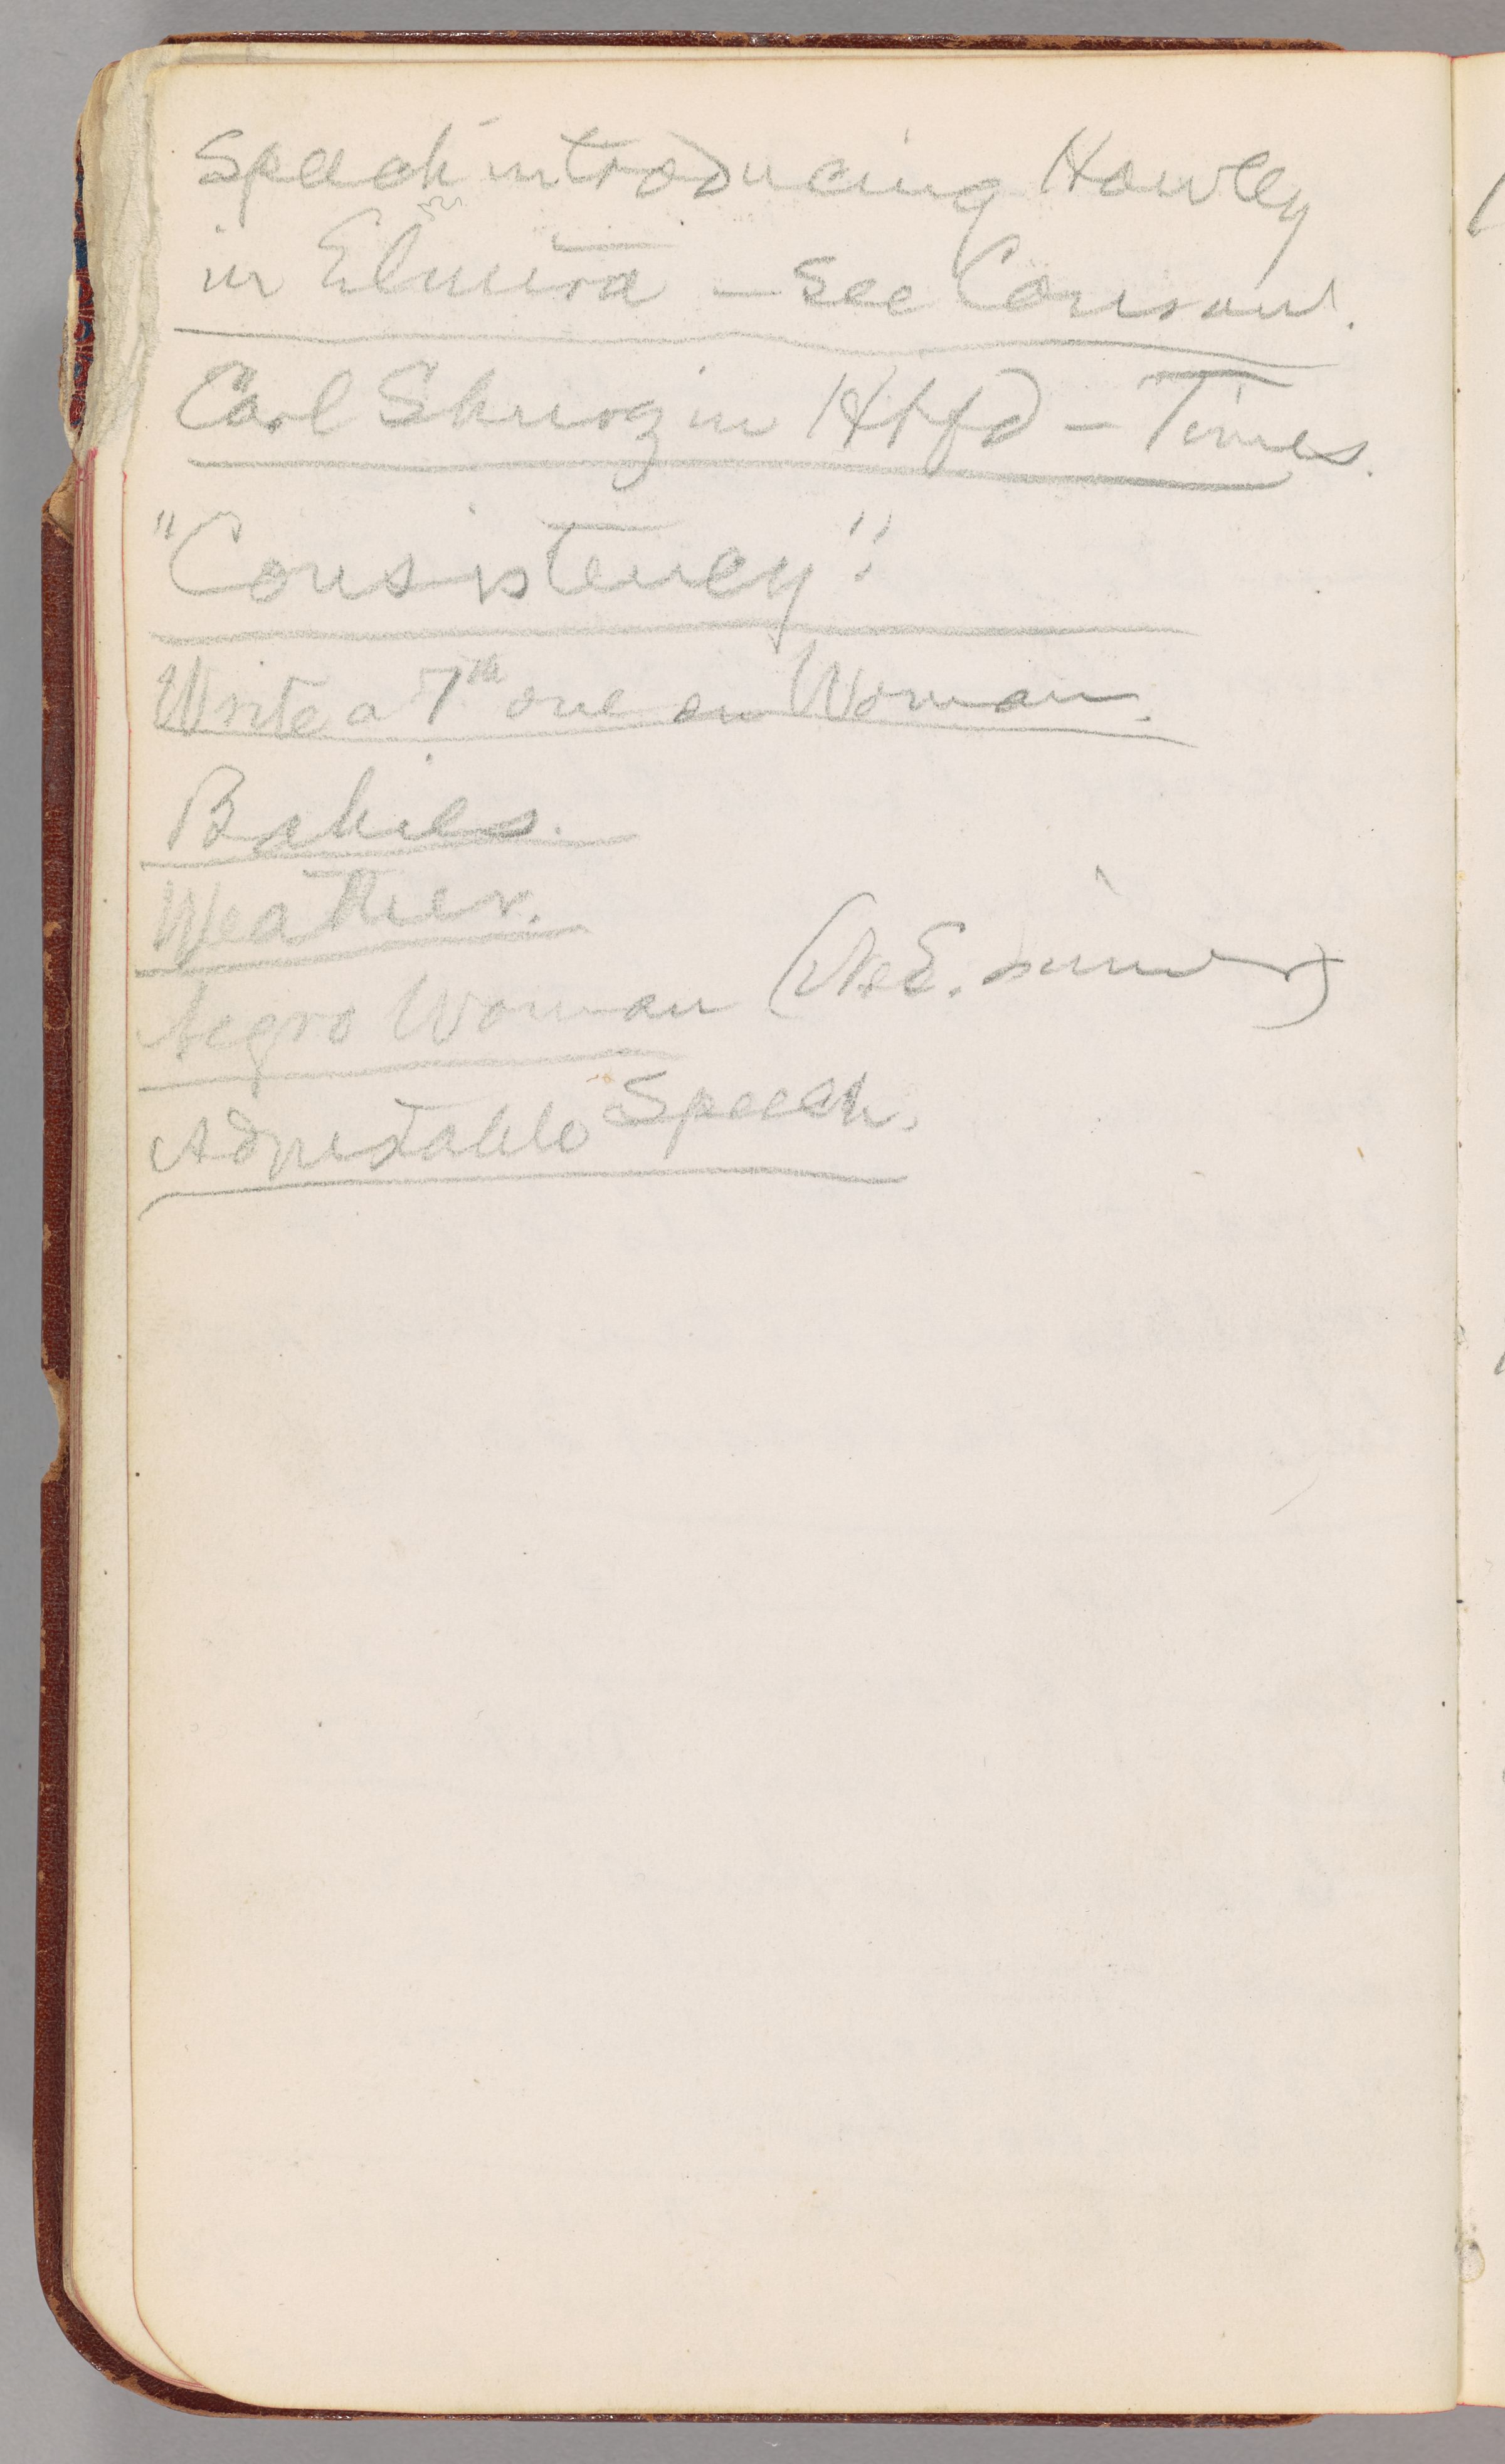 Speech introducing Hawley
in Elmira – see Courant.
Carl Shurz in Htfd – Times.
"Consistency".
Write a 7th one on Woman.
Babies.
Weather.
Negro Woman (N. E. dinner)
Adjustable Speech.